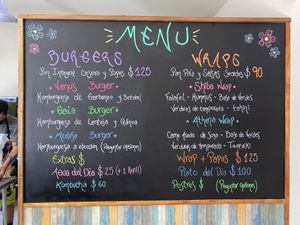 MENU
BURGERS
Pan Integral Casero y Papas $125
Venus Burger
Hamburguesa de Garbanzo y Betabel
Gaia Burger
Hamburguesa de Lenteja y Quinoa
Medusa Burger
Hamburguesa a eleccion (Preguntar opciones)
Extras $
Agua del Día $25 (+1 Refill)
Kombucha $60
WRAPS
Pan Pita y Salsas Secretas $90
Shiba Wrap
Falafel - Hummus - Base de Verdes
Verduras de temporada -
Athena Wrap
Carne de Soya - Base de Verdes
Verduras de temporada -
Wrap + Papas $125
Plato del Día $100
Postres $ (Preguntar opciones)